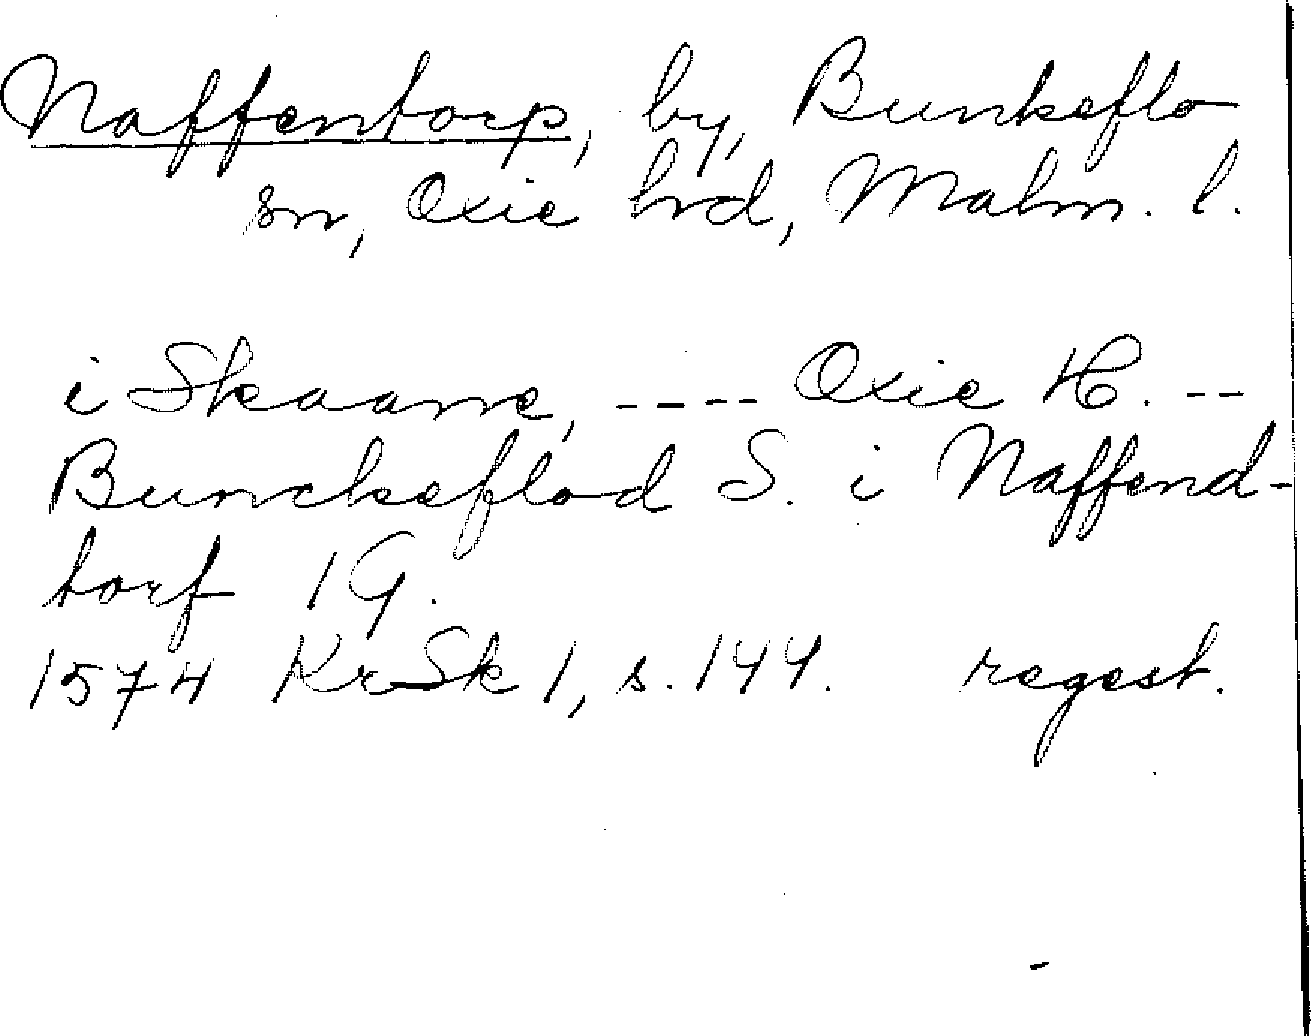 Naffentorp, by, Bunkeflo
sn, Oxie hrd, Malm. l.
i Skaane, ---- Oxie H. --
Bunckeflod S. i Naffend-
torf 1 G.
1574 KrSk 1, s. 144. regest.